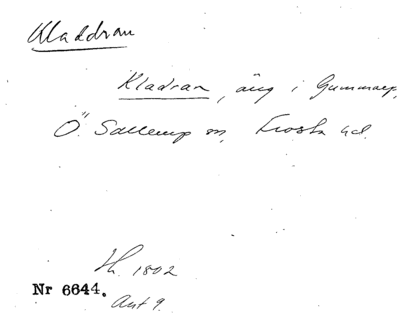 Kladdran
Kladran, äng i Gummarp,
Ö. Sallerup sn, Frosta hd.
Sk. 1802
Nr 6644.
Ant 9.